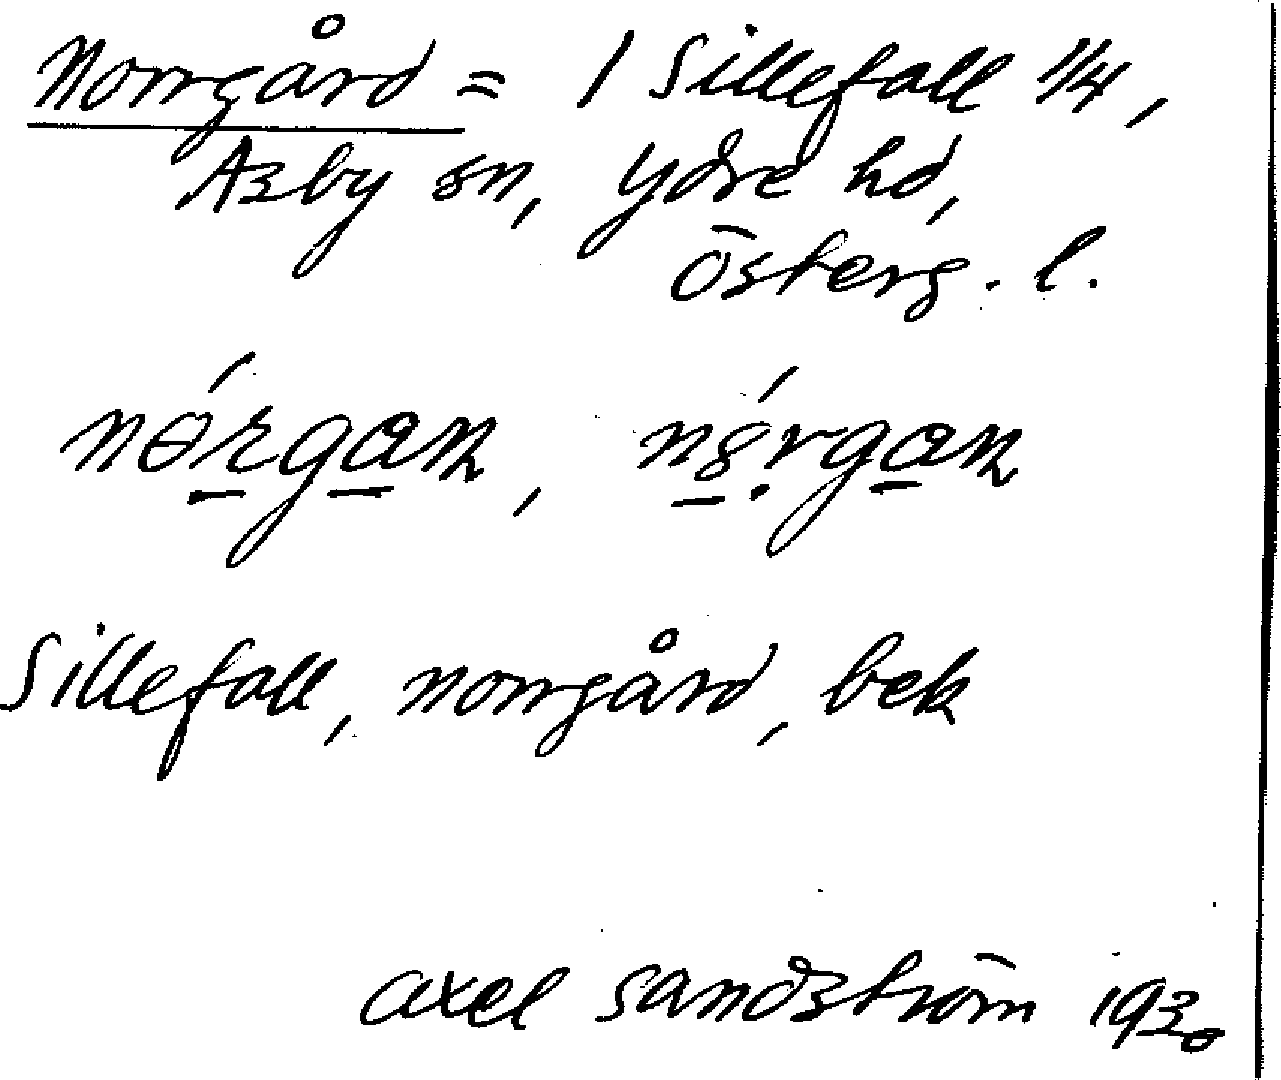 Norrgård = 1 Sillefall 1/4,
Asby sn, Ydre hd,
Österg. l.
nɵ́rgan, 
Sillefall, norrgård, bek
Axel Sandström 1930